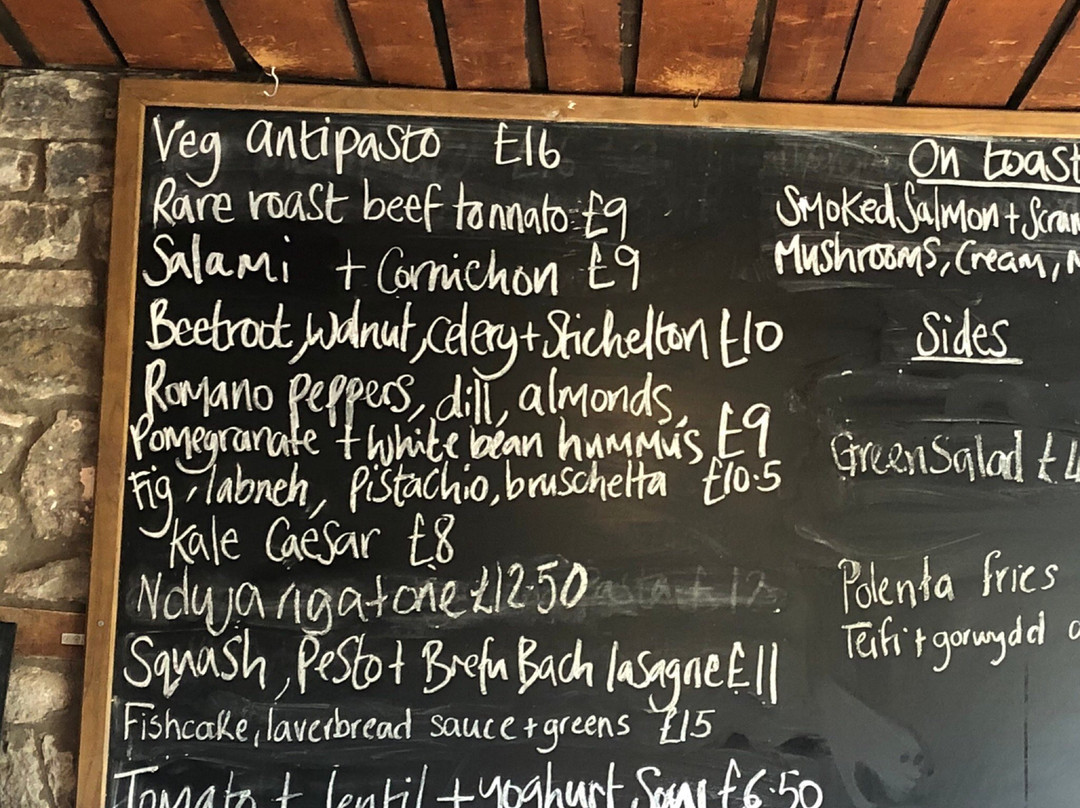 Veg antipasto £16
Rare roast beef tonnato £9
Salami + Cornichon £9
Beetroot, walnut, celery + Stichelton £10
Romano peppers, dill, almonds,
Pomegranate + white bean hummus £9
Fig, labneh, pistachio, bruschetta £10.5
Kale Caesar £8
Nduja rigatone £12.50
Squash, Pesto + Brefu Bach lasagne £11
Fishcake, laverbread sauce + greens £15
Tomato + lentil + yoghurt Soup £6.50
On toast
Smoked Salmon + Scram
Mushrooms, Cream,
Sides
Green Salad £4
Polenta fries
Teifi + gorwydd